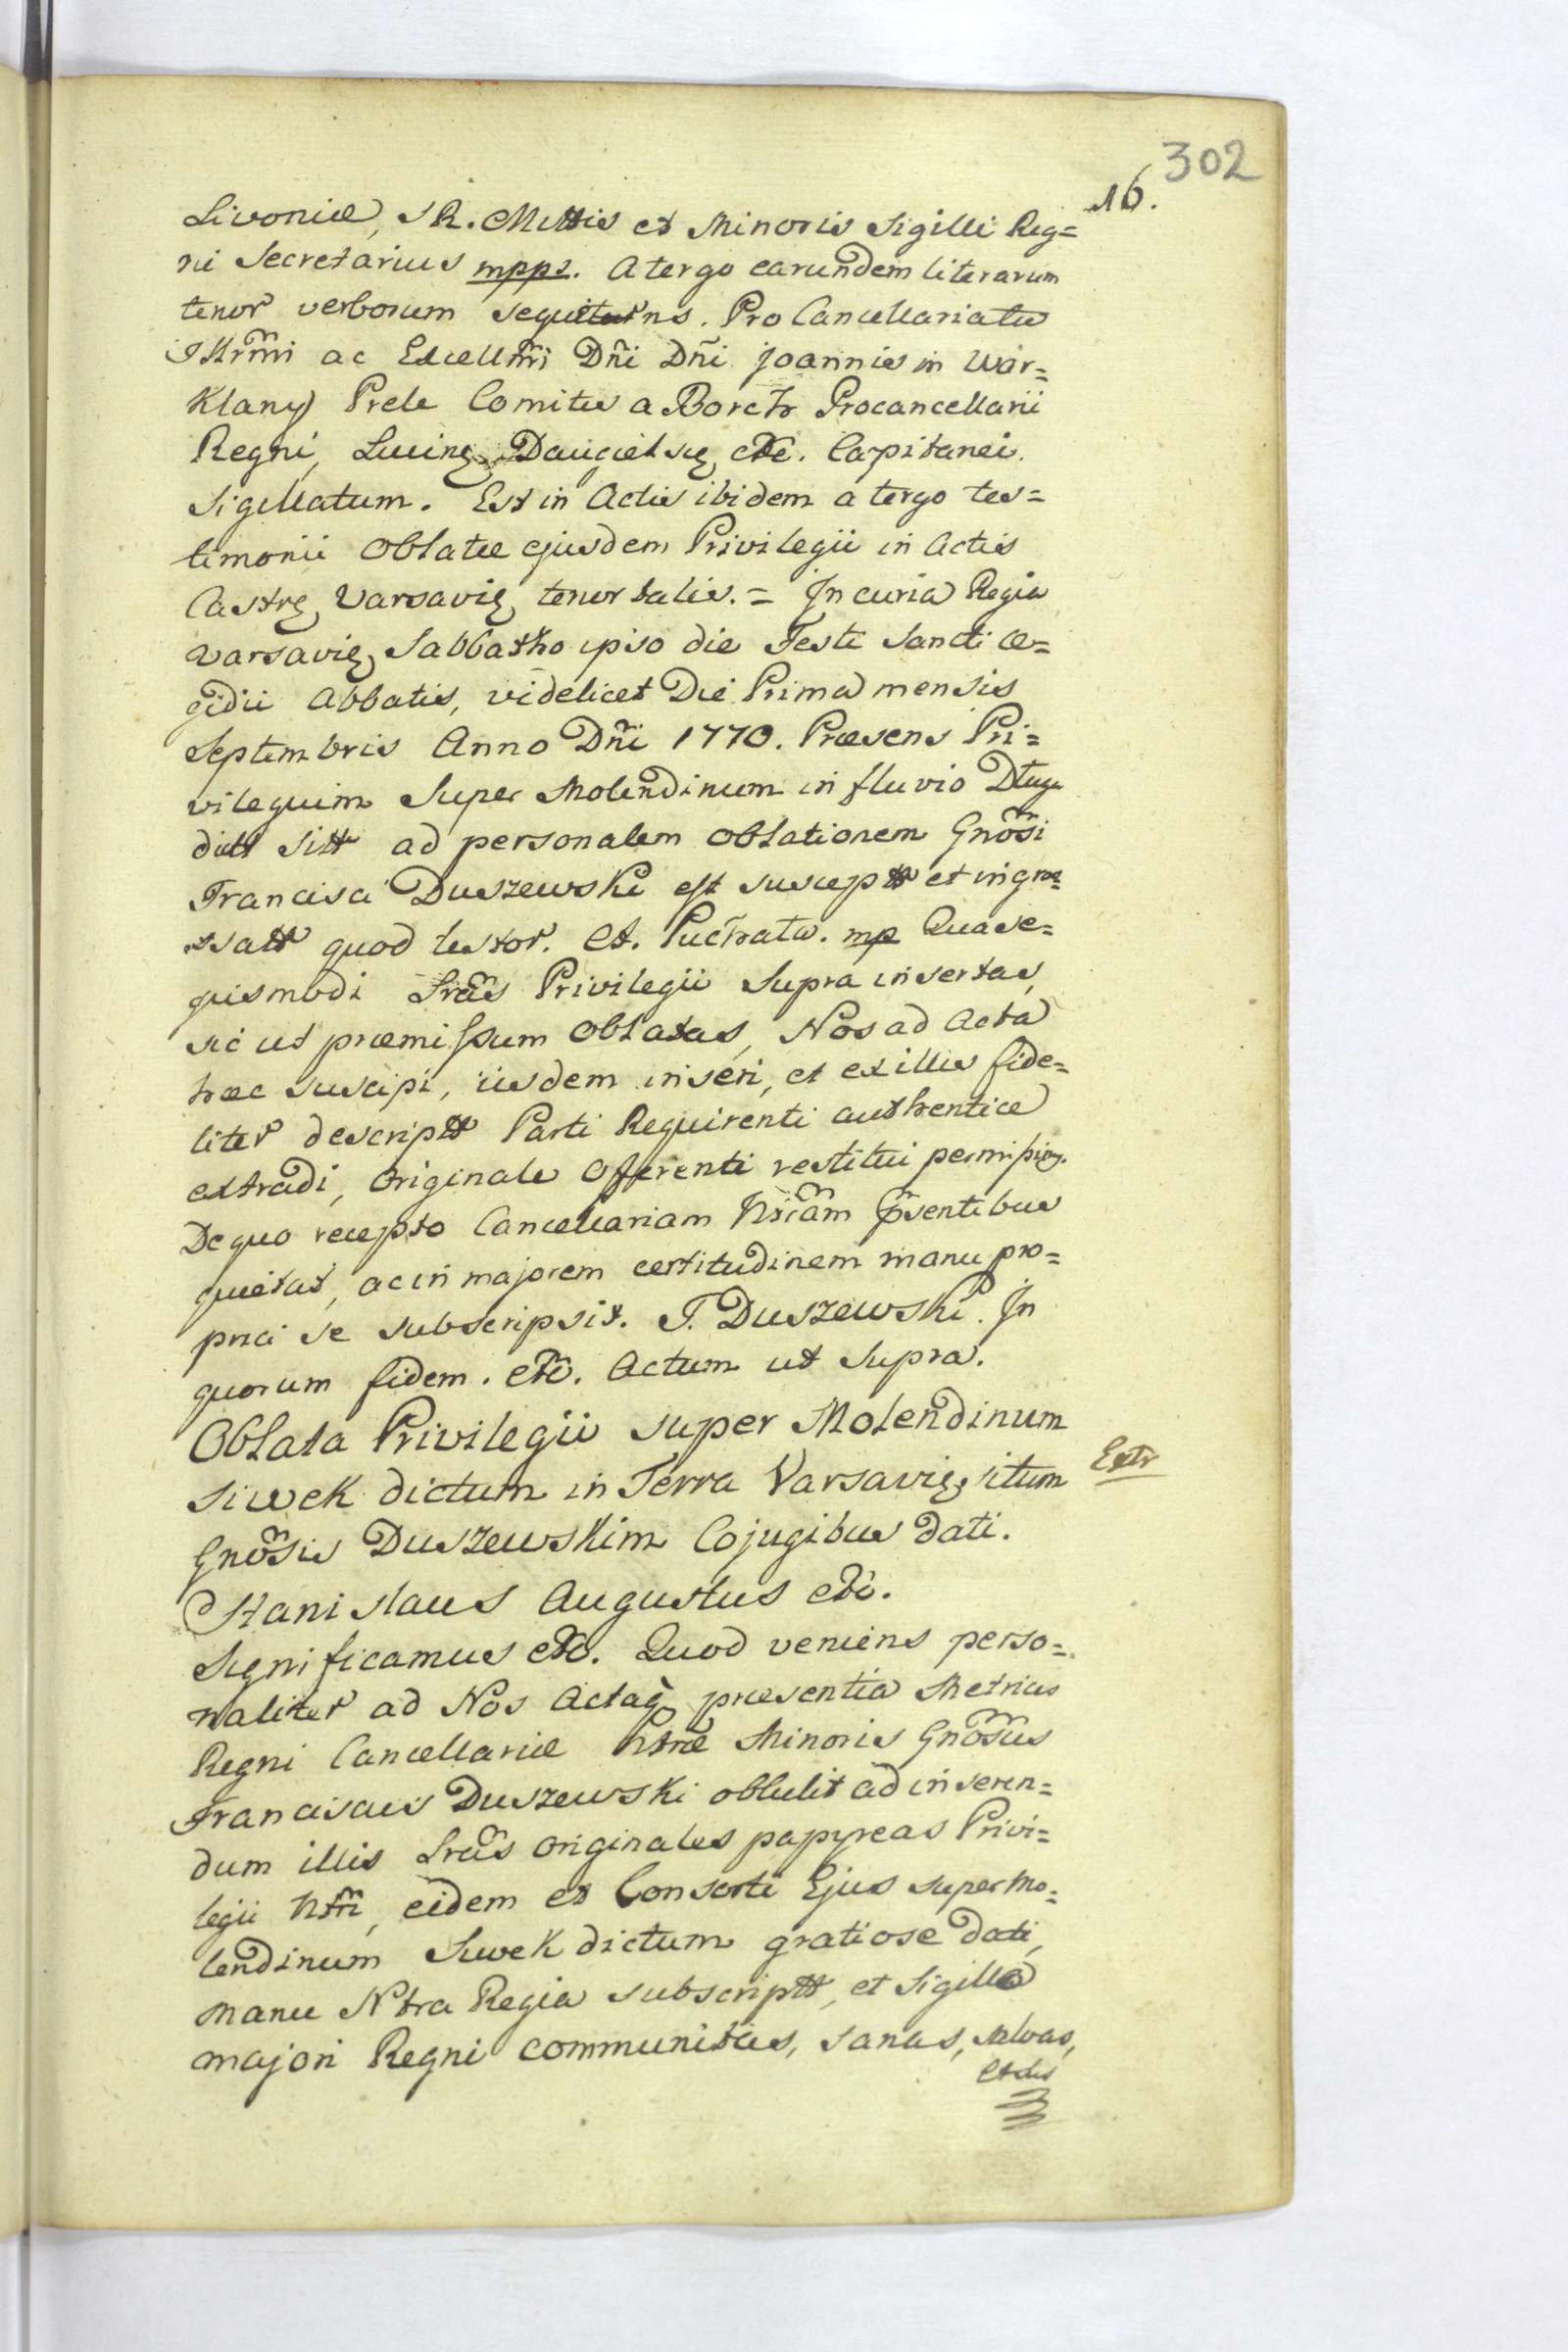 302
16.
Livoniæ, S R. Mttis et Minoris Sigilli Reg=
ni Secretarius mpps. A tergo earundem literarum
tenor verborum sequitur ns. Pro Cancellariatu
Illrm̃i ac Excellm̃i Dñi Dñi Joannis in War=
klany Prele Comitis a Borch Procancellarii
Regni, Lucinę, Daugielsię, etc. Capitanei.
Sigillatum. Est in Actis ibidem a tergo tes=
timonii Oblatæ ejusdem Privilegii in Actis
Castrę Varsavię, tenor talis. = In curia Regia
Varsavię, Sabbatho ipso die Festi Sancti Æ=
gidii Abbatis, videlicet Die Prima mensis
Septembris Anno Dñi 1770. Præsens Pri=
vilegium Super Molendinum in fluvio Długa
dict sitt ad personalem Oblationem Gnõsi
Francisci Duszewski est suscept et ingre=
ssatt quod testor. A. Puchała. mp Quas e=
juismodi Lrãs Privilegii Supra insertas,
sic ut præmissum Oblatas, Nos ad Acta
hæc suscipi, iisdem inseri, et ex illis fide=
liter descript Parti Requirenti authentice
extradi, Originale Offerenti restitui permisimus.
De quo recepto Cancellariam Nrãm p̃sentibus
quietat, ac in majorem certitudinem manu pro=
pria se subscripsit. F. Duszewski. In
quorum fidem. etc. Actum ut Supra.
Oblata Privilegii super Molendinum
Siwek dictum in Terra Varsavię, situm
Extr
Gnõsis Duszewskim Cojugibus dati.
Stanislaus Augustus etc.
Significamus etc. Quod veniens perso=
naliter ad Nos Actaq præsentia Metrices
Regni Cancellariæ Ntræ Minoris Gnõsus
Franciscus Duszewski obtulit ad inseren=
dum illis Lrãs Originales papyreas Privi=
legii Ntri, eidem et Consorti Ejus super Mo=
lendinum Siwek dictum gratiose dati,
manu Ntra Regia subscript, et Sigillo
majori Regni communitas, sanas, salvas,
et illes